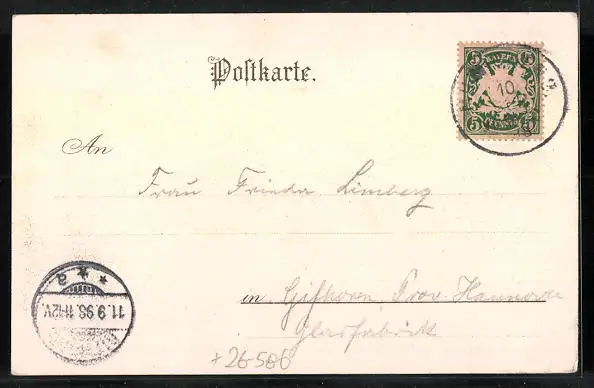 Postkarte.
BAYERN
5 5
10
5 PFENNIG 5
An
Frau Frieda Limberg
11.9.98.11-12V.
in Gifhorn Prov. Hannover
Glasfabrik
+26586